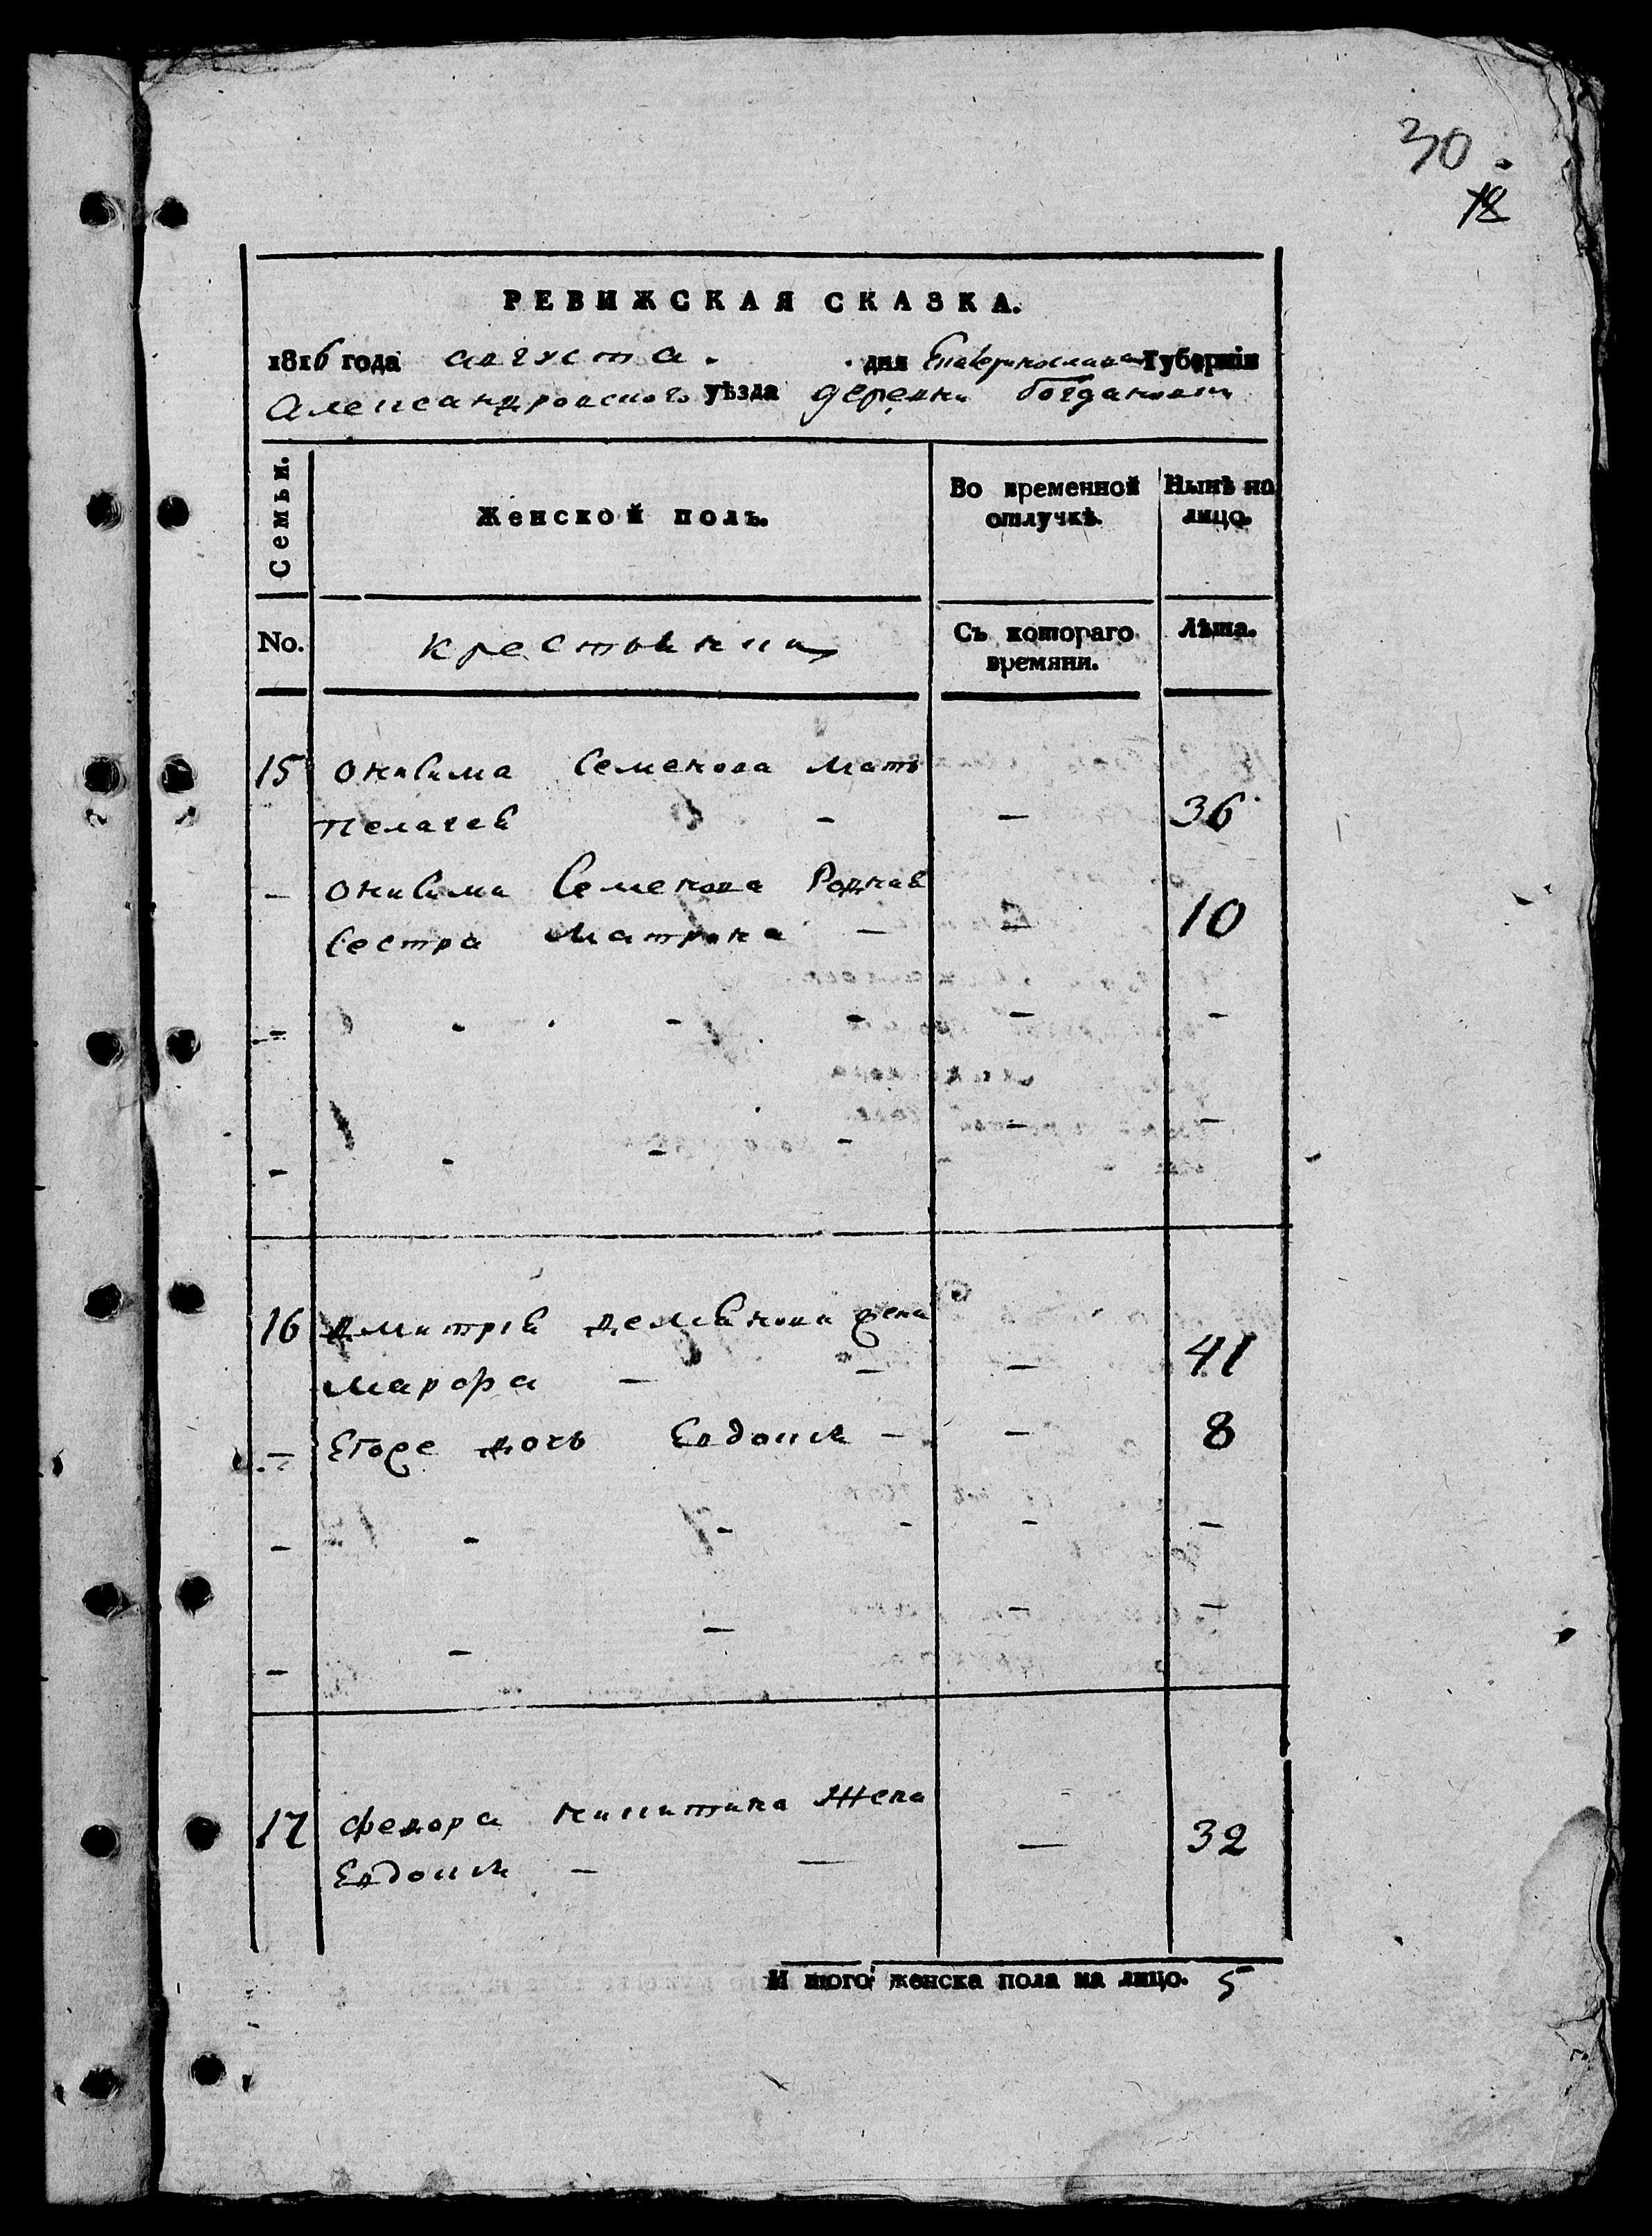 30.
18
РЕВИЖСКАЯ СКАЗКА.
1816 года августа . дня Екатеринославской Губернїи
Александровского уѣзда деревни богдановки
Семьи.
Женской полъ.
Во временной отлучкѣ.
Нынѣ на лицо.
No.
крестьянки
Съ котораго времяни.
Лѣта.
15 онисима Семенова мать
пелагея - - 36
- онисима Семенова Родная
Сестра Матрона - - 10
16 дмитрея демьянова жена
марфа - - - 41
- Егоже дочь Евдокия - - 8
17 федора никитина Жена
Евдокия - - - 32
И того женска пола на лицо. 5